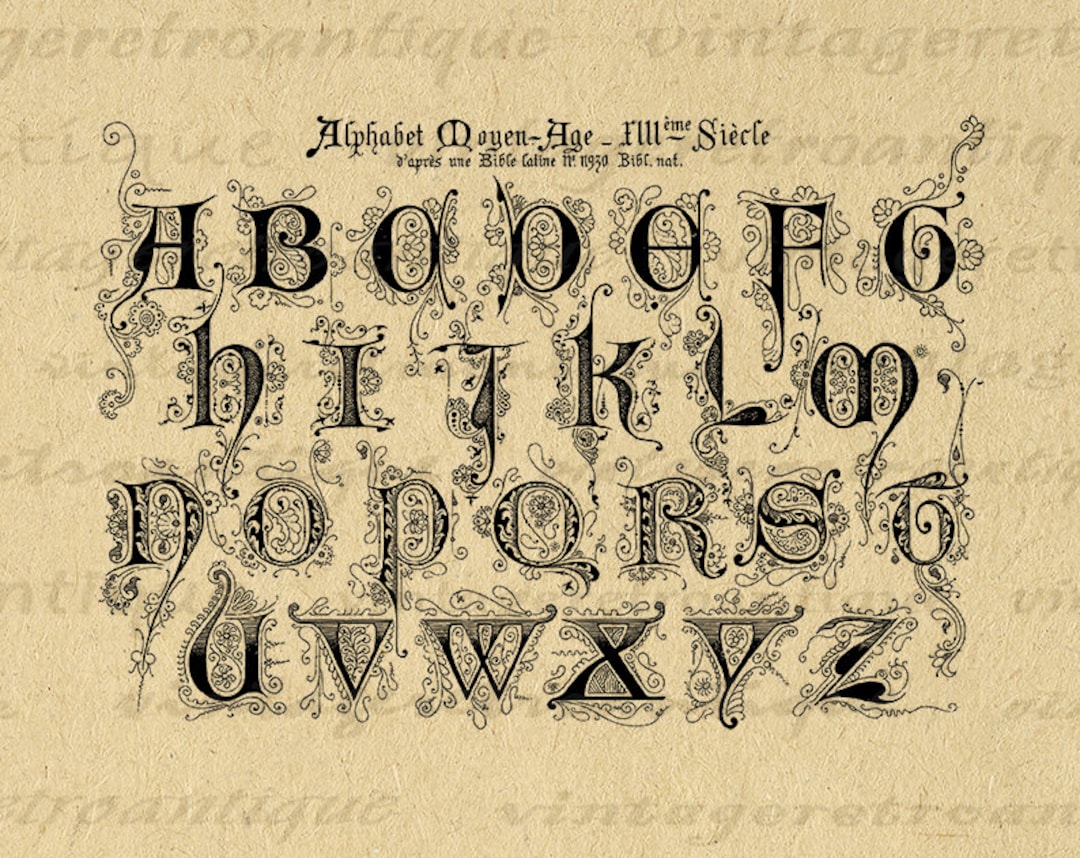 Alphabet Moyen-Age _ XIIIème Siècle
d'après une Bible latine Nº. 11930 Bibl. nat.
A B C D E F G
H I J K L M
N O P Q R S T
U V W X Y Z
vintageretroantique